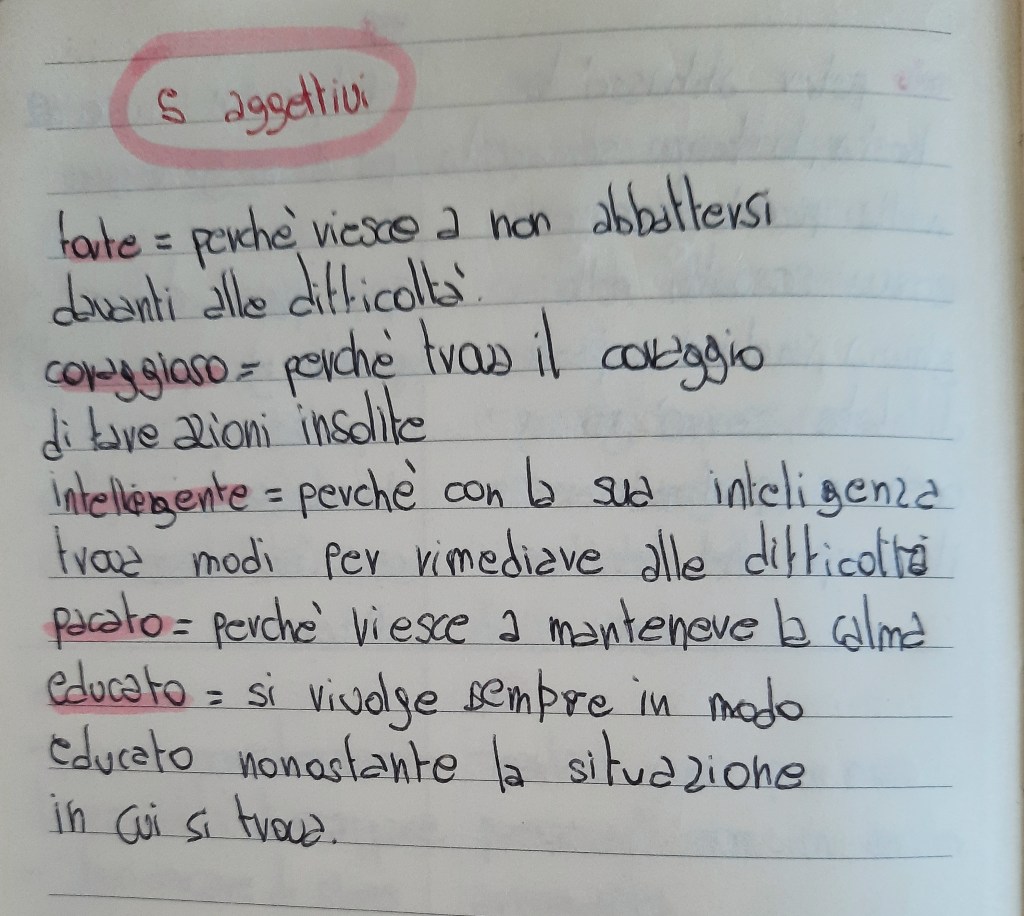 5 aggettivi
forte = perchè riesce a non abbattersi
davanti alle difficoltà.
coraggioso = perchè trova il coraggio
di fare azioni insolite
intelligente = perchè con la sua inteligenza
trova modi per rimediare alle difficoltà
pacato = perchè riesce a mantenere la calma
educato = si rivolge sempre in modo
educato nonostante la situazione
in cui si trova.